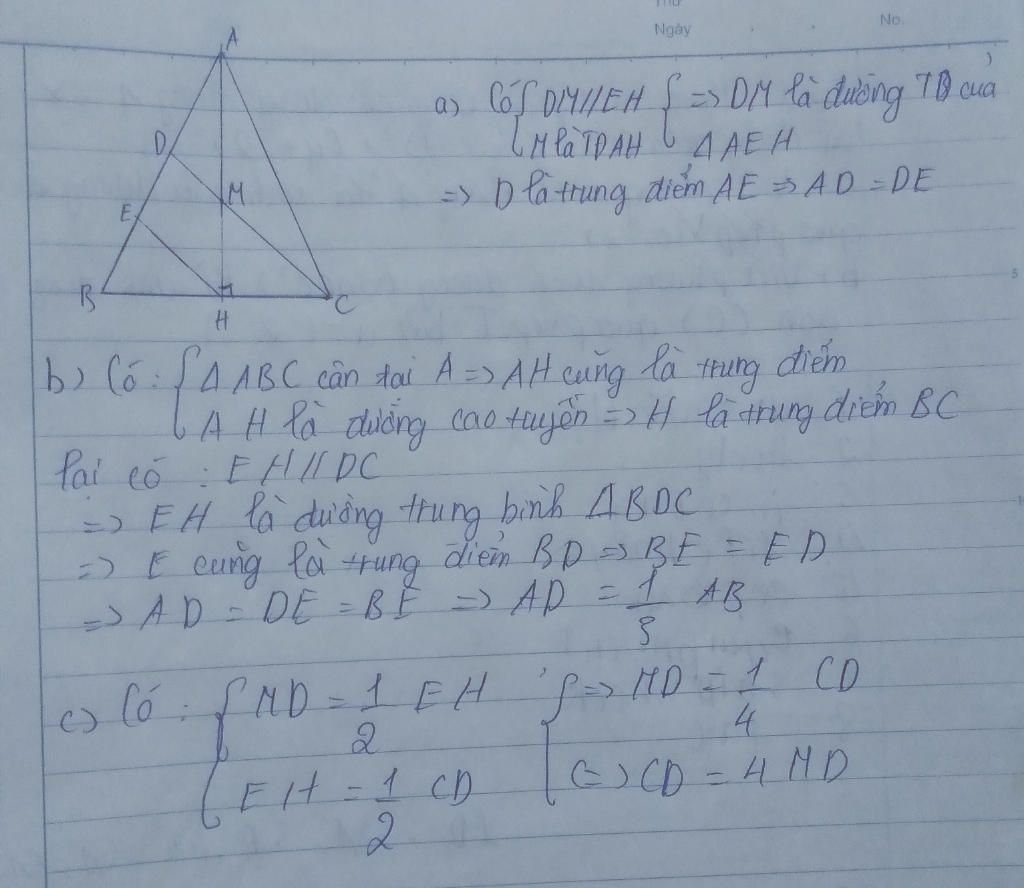 Thứ
Ngày
No.
A
D
M
E
B
H
C
a) Có { DM//EH } => DM là đường TB của
{ M là TĐ AH } ΔAEH
=> D là trung điểm AE => AD = DE
b) Có : { Δ ABC cân tại A => AH cũng là trung điểm
A H là đường cao tuyến => H là trung điểm BC
lại có : EH // DC
=> EH là đường trung bình ΔBDC
=> E cũng là trung điểm BD => BE = ED
=> AD = DE = BE => AD = 1/3 AB
c) Có : { MD = 1/2 EH } => MD = 1/4 CD
{ EH = 1/2 CD } (=) CD = 4 MD